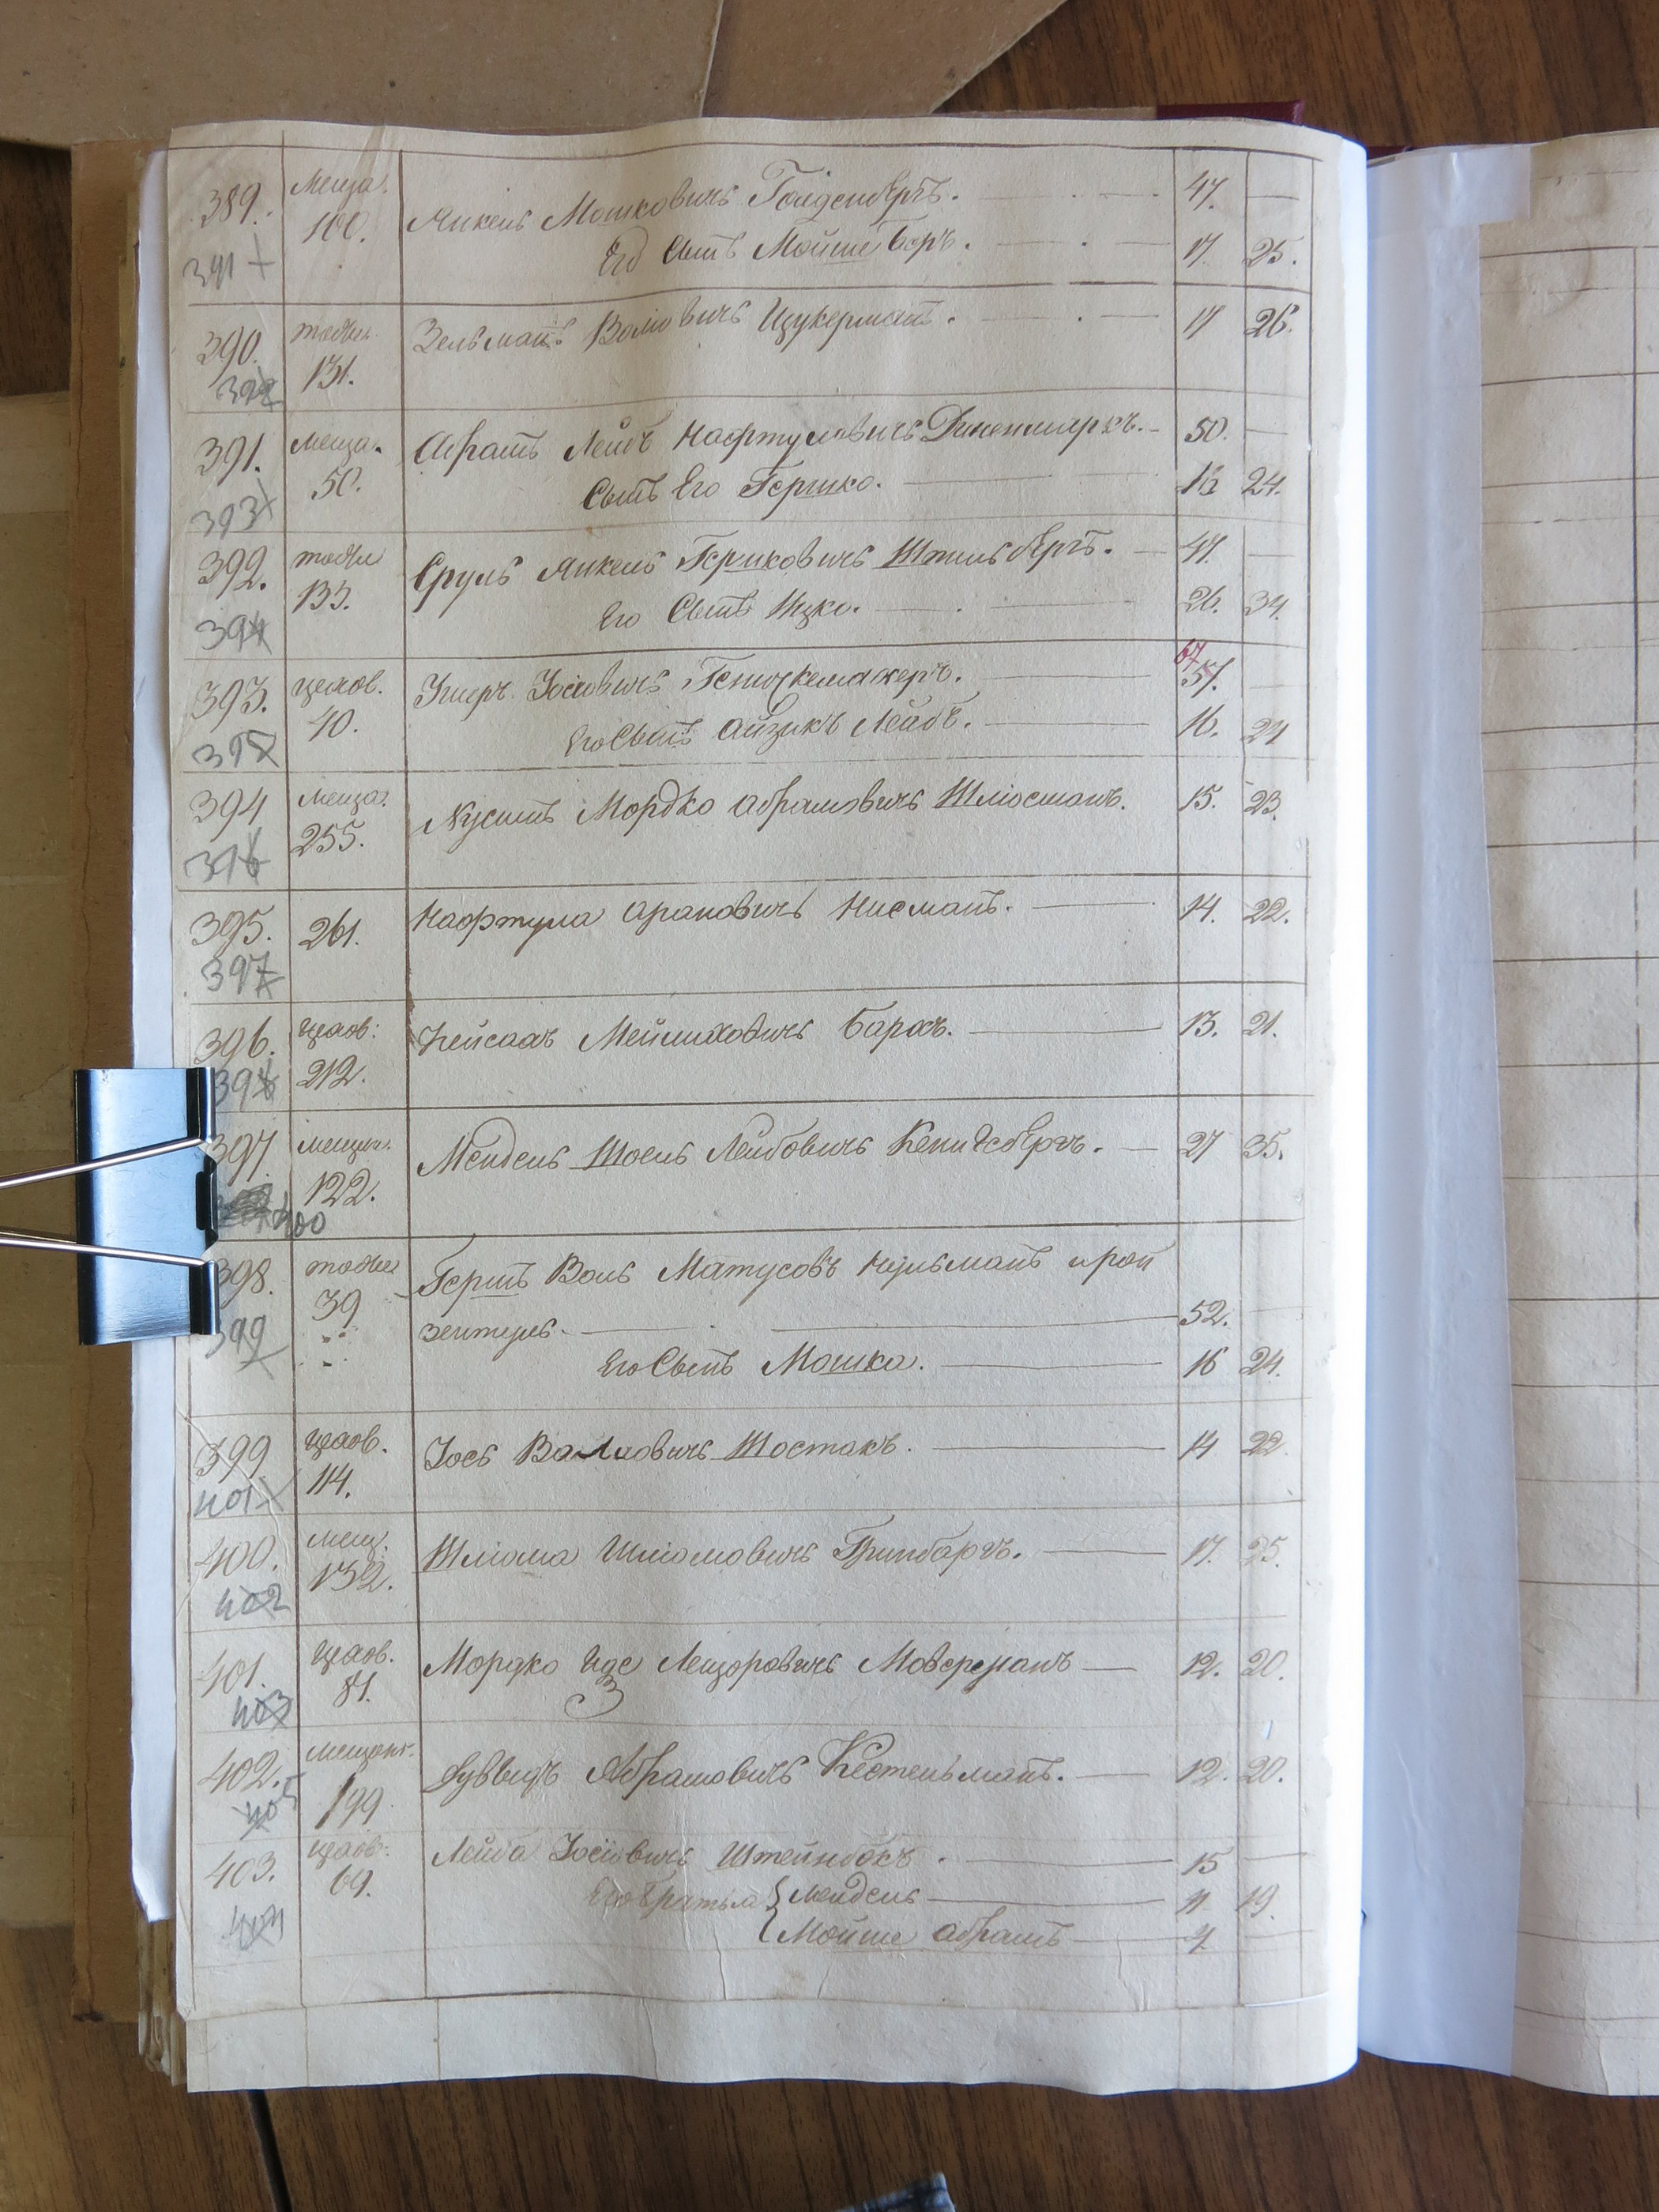 389. Меща. Янкель Мошковичъ Гольденбергъ. 47. —
391 100. Его Сынъ Мойше Беръ. 17. 25.
390. тоже Зельманъ Волковичъ Цукерманъ. 17 26.
392 131.
391. Меща. Абрамъ Лейбъ Нафтуловичъ Дикенмаркъ. 50. —
393 50. Сынъ Его Гершко. 16 24.
392. тоже Сруль Янкель Гершковичъ Штильбергъ. 47. —
394 133. Его Сынъ Ицко. 26. 34.
67
393. цехов. Умеръ Іосіовичъ 57. —
395 40. Его Сынъ Айзикъ Лейбъ. 16. 24
394 Меща. Нусинъ Мордко Абрамовичъ Шлюсманъ. 15. 23.
396 255.
395. 261. Нафтула Ароновичъ Нисманъ. 14. 22.
397
396. цехов: Пейсахъ Мейлиховичъ Барахъ. 13. 21.
398 212.
397. мещан. Мендель Шоель Лейбовичъ Кенигсбергъ. 27 35.
122.
400
398. тоже Гершъ Воль Матусовъ Нульманъ ирой
39 зентуль. 52.
399 Его Сынъ Мошка. 16 24.
399 цехов. Іось Валковичъ Шостакъ. 14 22
401 114.
400. мещ. Шлиома Шлиомовичъ Гринбаргъ. 17. 25.
402 132.
401. цехов. Мордко Иде Лейзоровичъ Моверманъ 12. 20.
403 81. З
402. мещан. Дуввидъ Абрамовичъ Кестельманъ. 12. 20.
405 199.
403. цехов. Лейба Іосіовичъ Штейнбокъ. 15 —
69. Его братья { Мендель 11 19.
404 { Мойше Абрамъ 7.